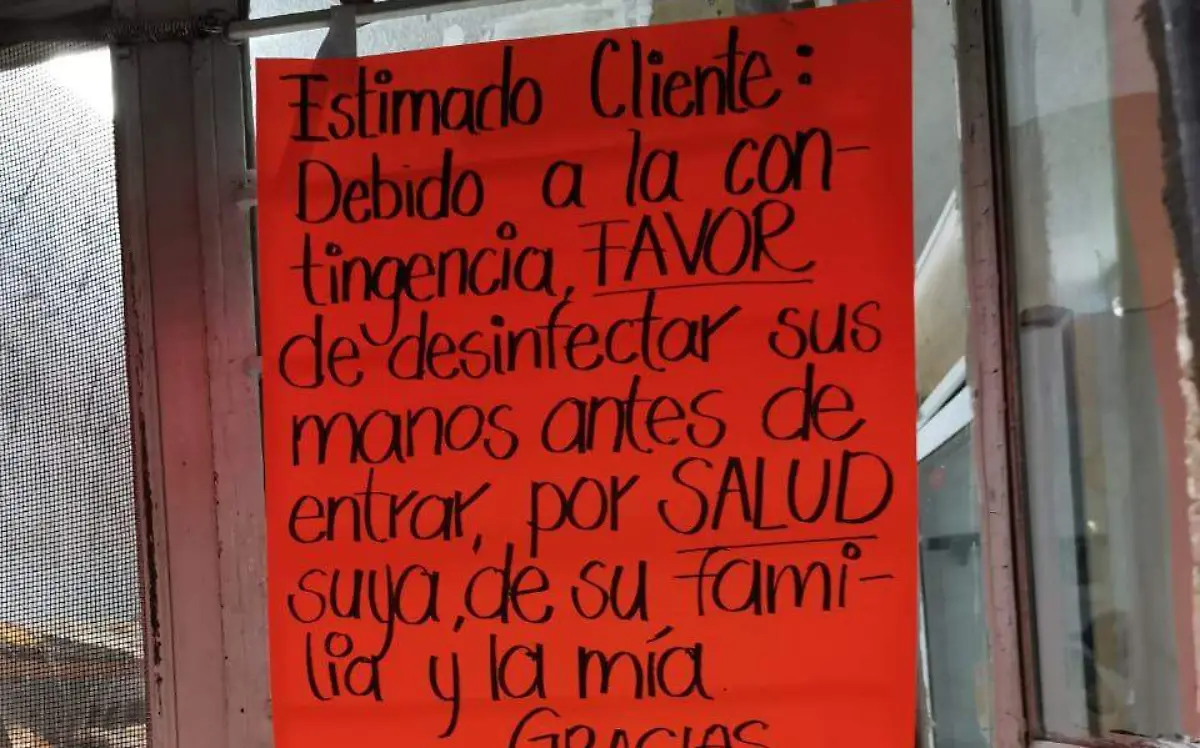 Estimado Cliente:
Debido a la con-
tingencia, FAVOR
de desinfectar sus
manos antes de
entrar, por SALUD
suya, de su fami-
lia y la mía
GRACIAS